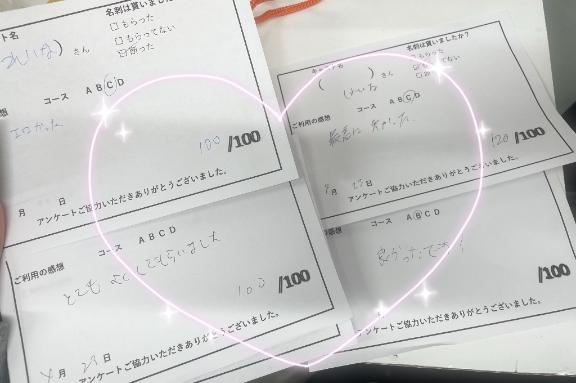 ト名
れいな）さん
名刺は貰いましたか？
□もらった
□もらってない
☑断った
コース ABCD
エロかった
100/100
月 日
アンケートご協力いただきありがとうございました。
キャスト名
（ ）さん
れいな
名刺は貰いましたか？
□もらった
もらってない
断った
コース ABCD
ご利用の感想
最高に
120/100
月 25日
アンケートご協力いただきありがとうございました。
コース ABCD
ご利用の感想
とても よくしてもらいました
100/100
月 23日
アンケートご協力いただきありがとうございました。
感想
コース ABCD
良かったです
/100
アンケートご協力いただきありがとうございました。